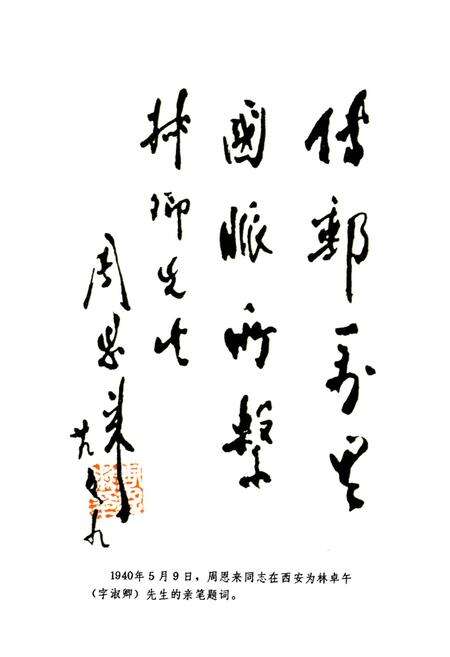 傳郵萬里
國脈所繫
淑卿先生
周恩來
廿九五九
1940年5月9日，周恩来同志在西安为林卓午
（字淑卿）先生的亲笔题词。